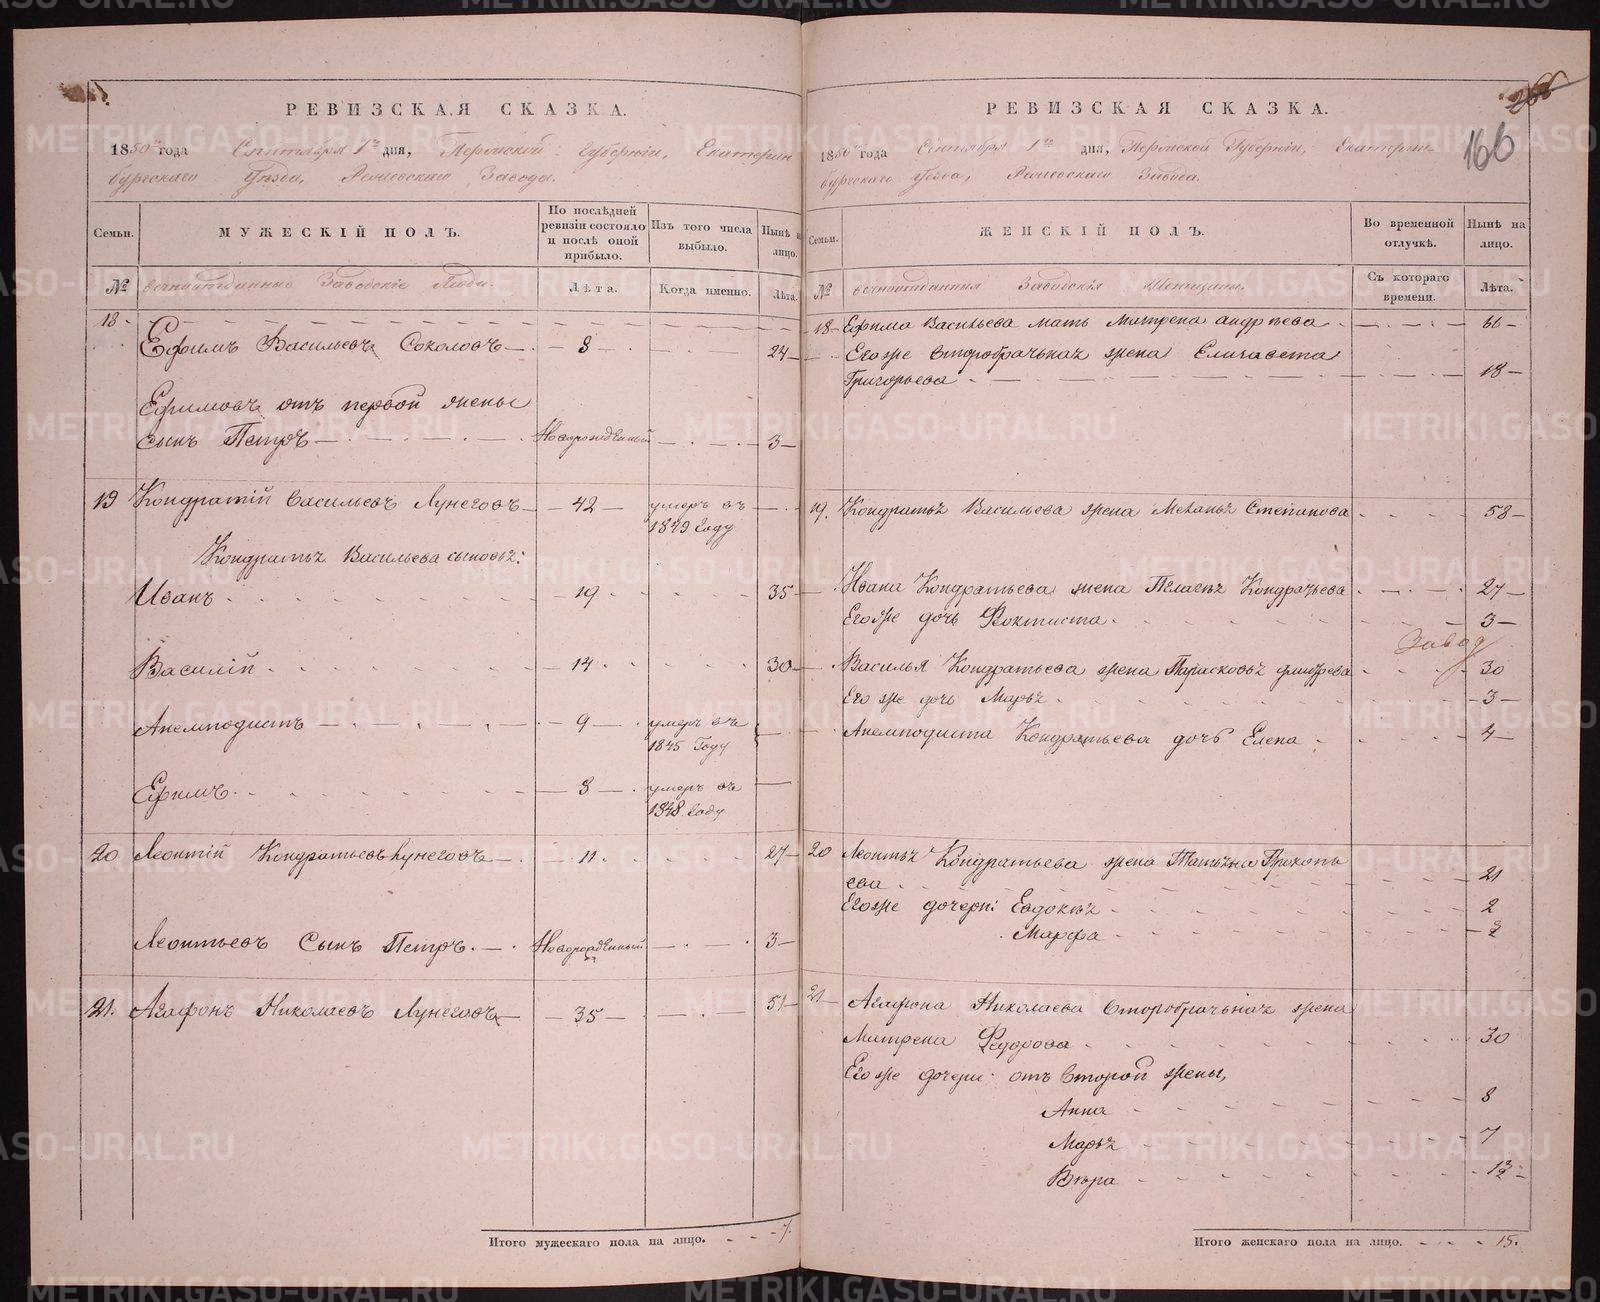 РЕВИЗСКАЯ СКАЗКА.
1850 года Сентября 1го дня, Пермской Губерніи, Екатерин
бургскаго Уезда, Режевскаго Завода.
Семьи.
МУЖЕСКІЙ ПОЛЪ.
По послѣдней ревизіи состояло и послѣ оной прибыло.
Изъ того числа выбыло.
Нынѣ на лицо.
№
вечноотданные Заводскіе Люди.
Лѣта.
Когда именно.
Лѣта.
18
Ефимъ Васильевъ Соколовъ — 8 — 24
Ефимовъ отъ первой жены
сынъ Петръ — Новорожденный — 3
19 Кондратій Васильевъ Лунеговъ — 42 — умеръ въ
1849 Году
Кондратья Васильева сыновья:
Иванъ — 19 — 35
Василій — 14 — 30
Анемподистъ — 9 — умеръ въ
1845 Году
Ефимъ — 8 — умеръ въ
1848 Году
20 Леонтій Кондратьевъ Лунеговъ — 11 — 27
Леонтьевъ Сынъ Петръ — Новорожденный — 3
21. Агафонъ Николаевъ Лунеговъ — 35 — 51
Итого мужескаго пола на лицо. - - - 7.
РЕВИЗСКАЯ СКАЗКА.
266
166
1850 года Сентября 1го дня, Пермской Губерніи, Екатерин
бургскаго Уезда, Режевскаго Завода.
Семьи.
ЖЕНСКІЙ ПОЛЪ.
Во временной отлучкѣ.
Нынѣ на лицо.
№
вечноотданныя Заводскія Женщины.
Съ котораго времени.
Лѣта.
18 Ефима Васильева мать Матрена Андреева — 66
Его же второбрачная жена Елизавета
Григорьева — 18
19. Кондратья Васильева жена Меланья Степанова — 58
Ивана Кондратьева жена Пелагея Кондратьева — 27
Его же дочь Фоктиста — 3
Завод
Василья Кондратьева жена Парасковья — 30
Его же дочь Марья — 3
Анемподиста Кондратьева дочь Елена — 4
20 Леонтья Кондратьева жена Татьяна Прокопь
ева — 21
Его же дочери: Евдокея — 2
Марфа —
21 Агафона Николаева второбрачная жена
Матрена Федорова — 30
Его же дочери отъ второй жены,
Анна — 8
Марья — 7
Вера — 1½
Итого женскаго пола на лицо. - - - 15.
METRIKI.GASO-URAL.RU